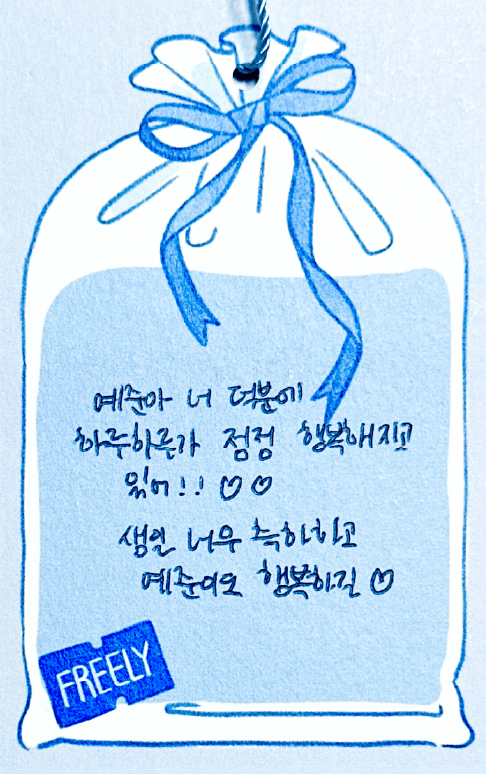 예준아 너 덕분에
하루하루가 점점 행복해지고
있어!! ♡♡
생일 너무 축하하고
예준이도 행복하길 ♡
FREELY